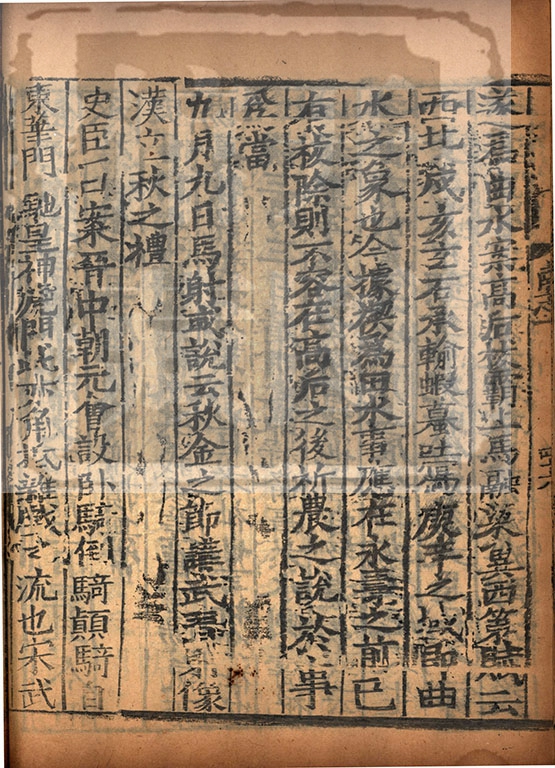 遂爲曲水案高后祓霸上馬融梁兾西第賦云
西北戌亥玄石承輸蝦蟇吐寫庚辛之域即曲
水之象也今據禊爲曲水事應在永壽之前已
有祓除則不容在高后之後祈農之說於事
爲當
九月九日馬射或說云秋金之節講武習射像
漢立秋之禮
史臣曰案晉中朝元會設卧騎倒騎顛騎自
東華門馳神虎門此亦角抵雜戲之流也宋武